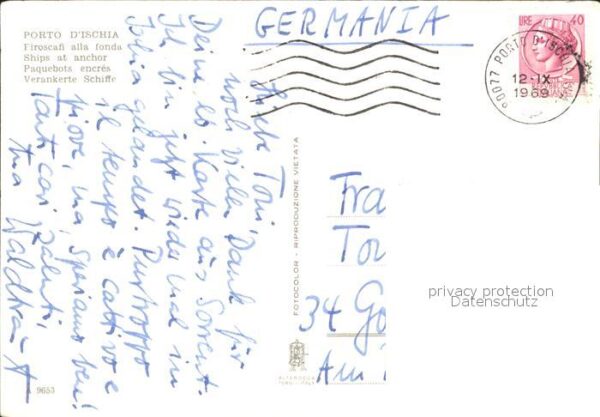 PORTO D'ISCHIA
Firoscafi alla fonda
Ships at anchor
Paquebots encrés
Verankerte Schiffe
GERMANIA
LIRE 40
80077 PORTO D'ISCHIA
12-IX
1969
Liebe Toni,
noch vielen Dank für
Deine lb. Karte aus Sorrent.
Ich bin jetzt wieder mal in
Ischia gelandet. Purtroppo
il tempo è cattivo e
piove, ma speriamo ben!
Tanti cari saluti,
tua Waldtraut
FOTOCOLOR - RIPRODUZIONE VIETATA
Fra
Ton
34 Gö
Am
privacy protection
Datenschutz
A 9653